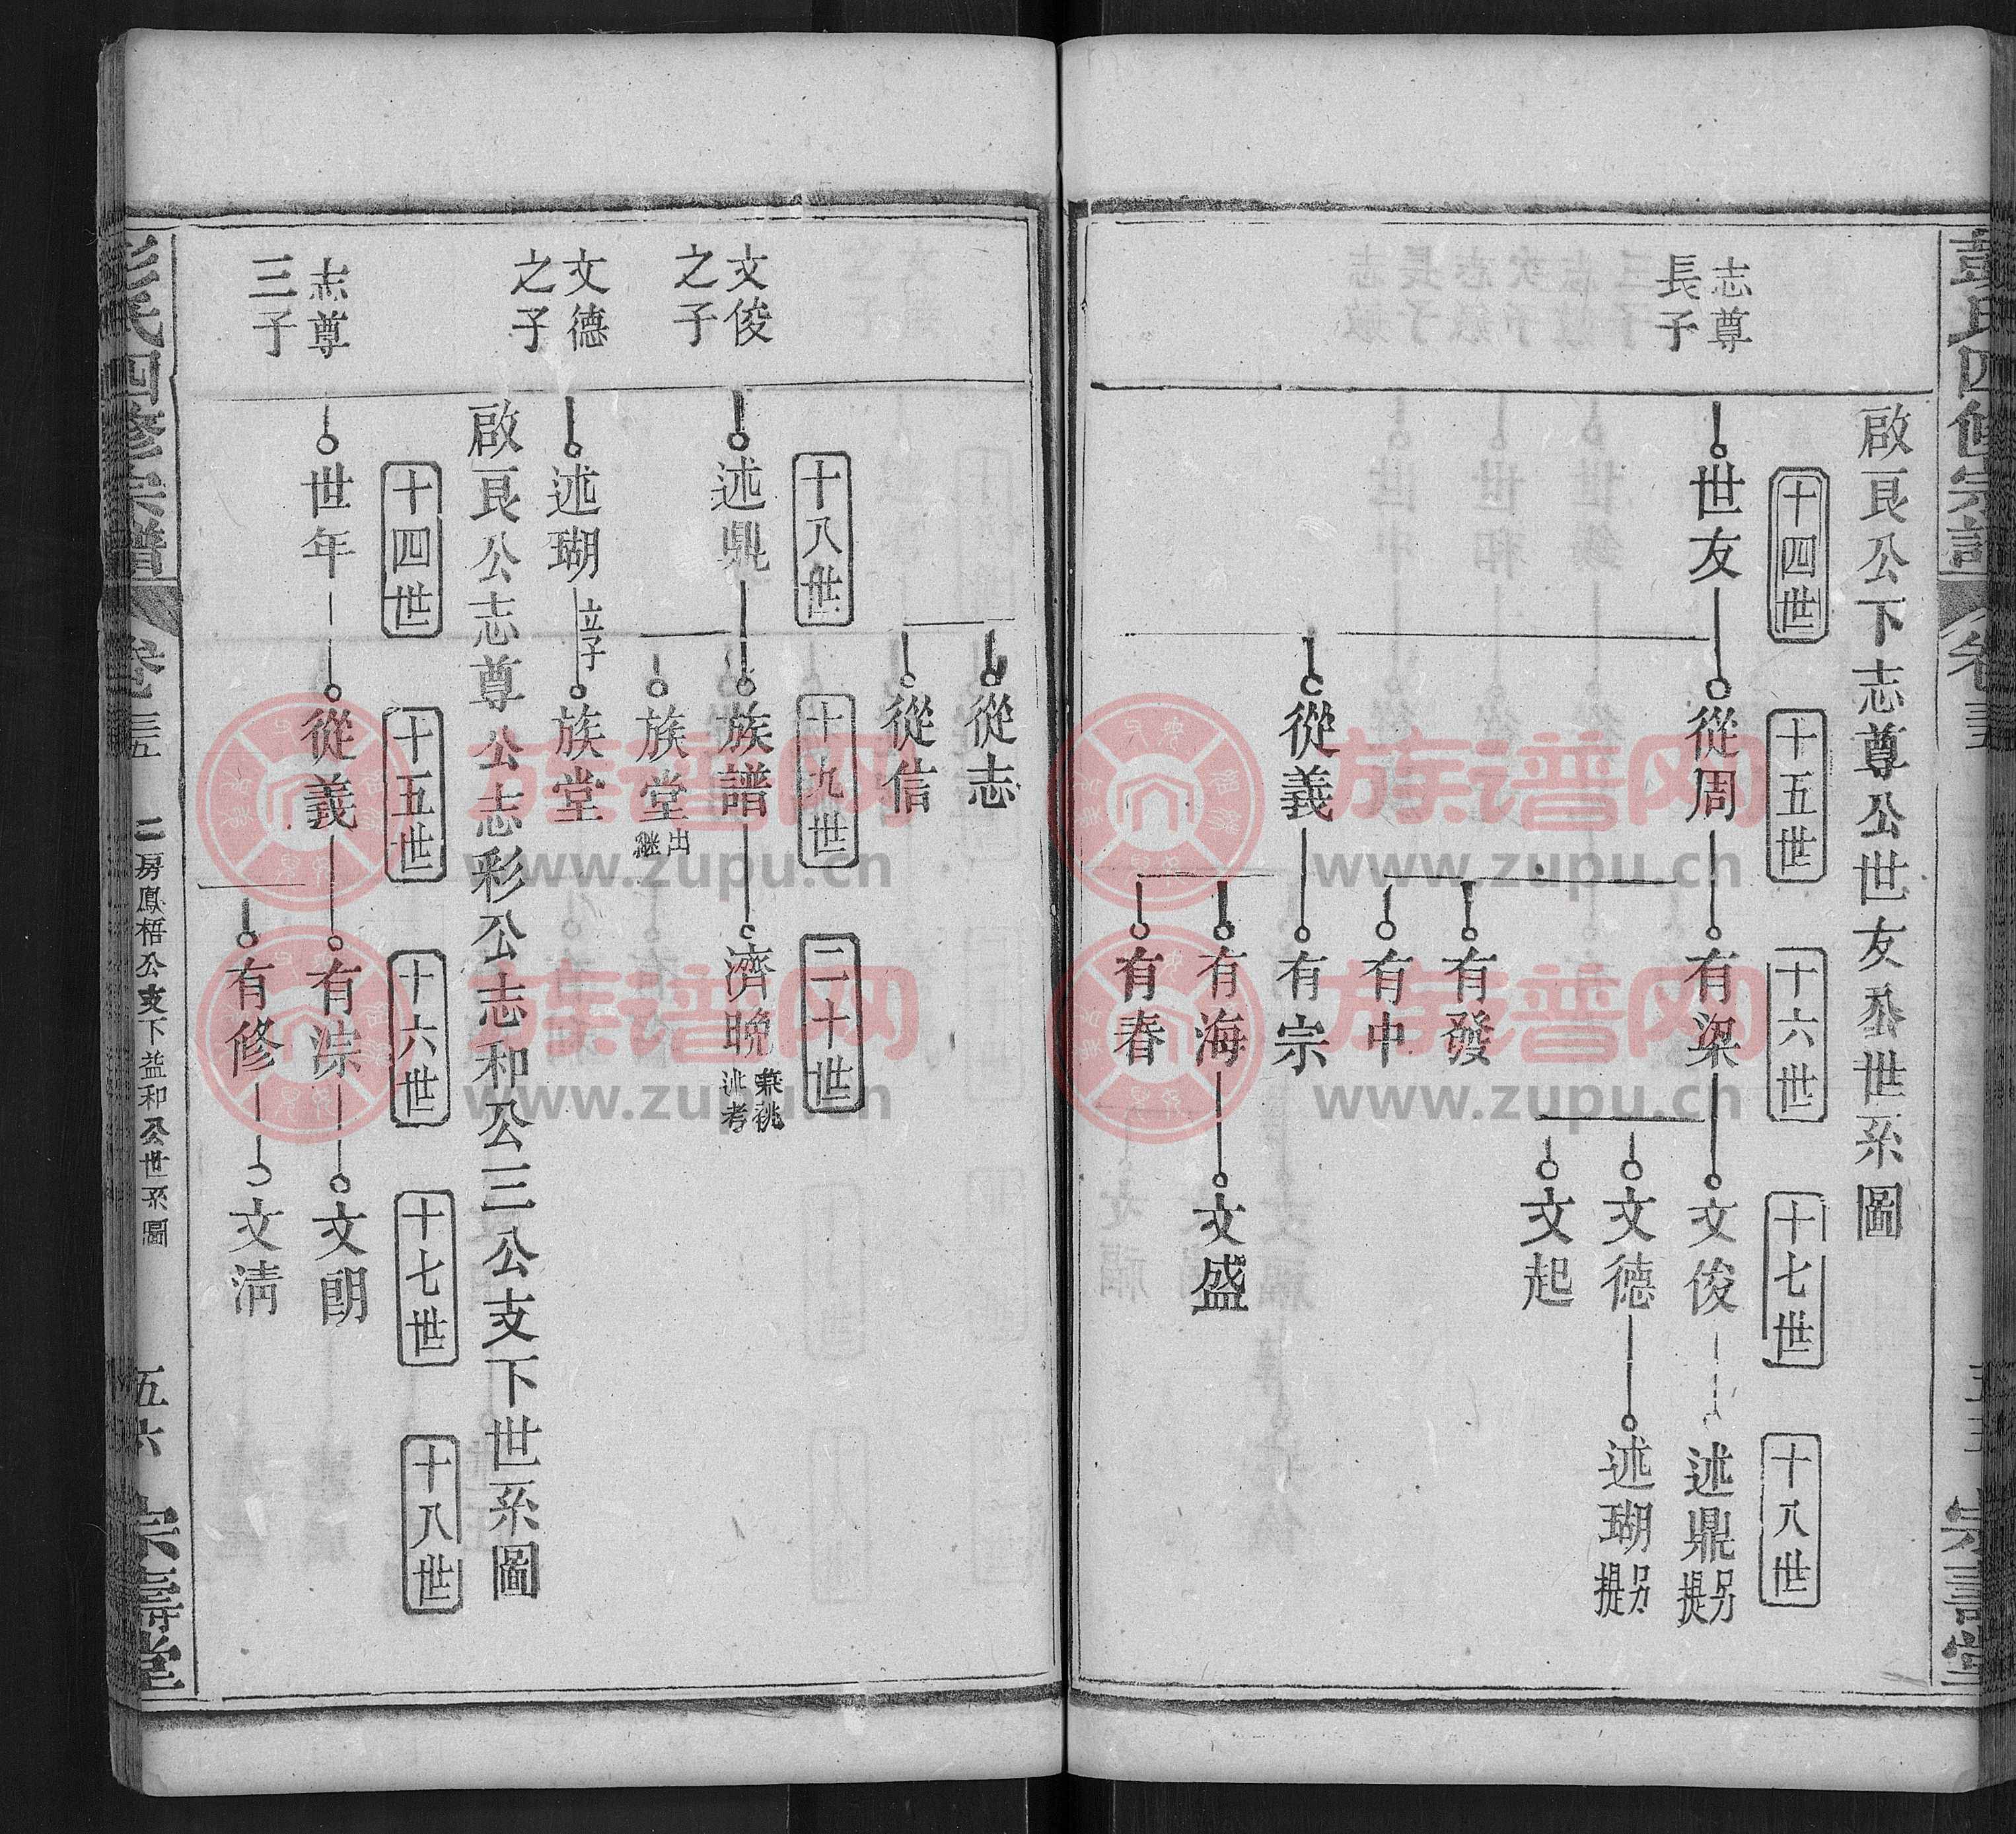 彭氏四修宗譜
卷三五
五五
宗壽堂
啟良公下志尊公世友叅世系圖
十四世
十五世
十六世
十七世
十八世
志尊
長子
世友
從周
有梁
文俊
述鼎另提
文德
述瑚另提
文起
有發
有中
從義
有宗
有海
文盛
有春
從志
從信
十八世
十九世
二十世
文俊
之子
述鼎
族譜
濟晚
兼祧
派考
族堂
出繼
文德
之子
述瑚
立子
族堂
啟良公志尊公志彩公志和公三公支下世系圖
十四世
十五世
十六世
十七世
十八世
志尊
三子
世年
從義
有淙
文朗
有修
文清
彭氏四修宗譜
卷三五
二房鳳梧公支下益和公世系圖
五六
宗壽堂
族谱网
www.zupu.cn
族谱网
www.zupu.cn
族谱网
www.zupu.cn
族谱网
www.zupu.cn